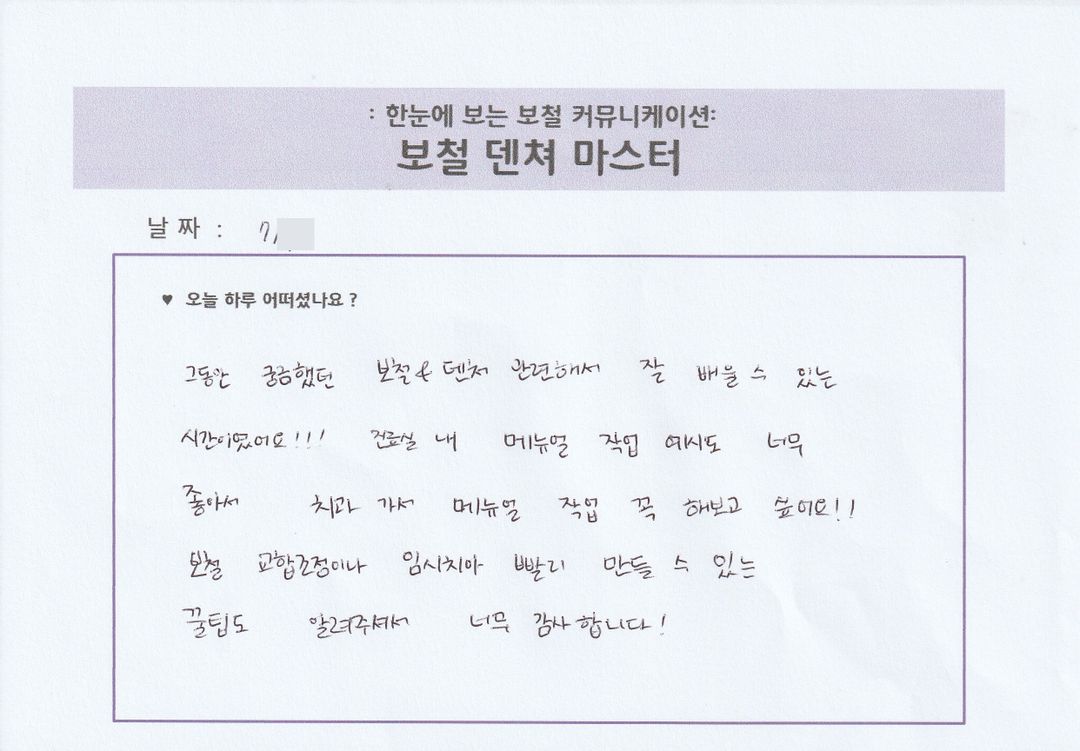 : 한눈에 보는 보철 커뮤니케이션:
보철 덴쳐 마스터
날 짜 : 7/
♥ 오늘 하루 어떠셨나요 ?
그동안 궁금했던 보철 & 덴처 관련해서 잘 배울 수 있는
시간이였어요!!! 진료실 내 메뉴얼 작업 예시도 너무
좋아서 치과 가서 메뉴얼 작업 꼭 해보고 싶어요!!
보철 교합조정이나 임시치아 빨리 만들 수 있는
꿀팁도 알려주셔서 너무 감사합니다!